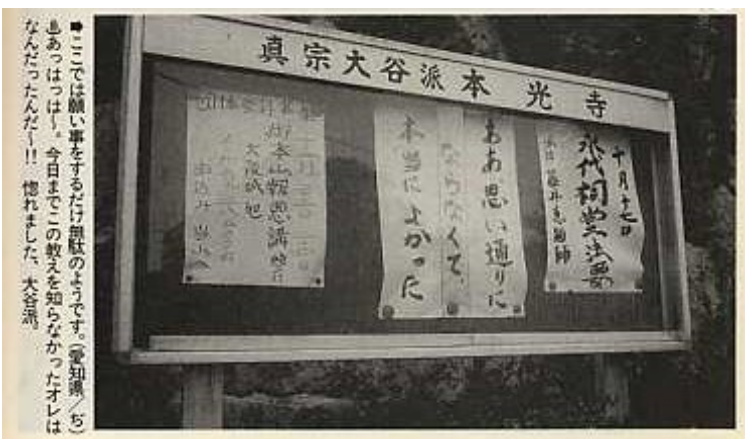 真宗大谷派本光寺
十月十七日
永代祠堂法要
ああ思い通りに
ならなくて、
本当によかった
本山報恩講
大阪城
➡ここでは願い事をするだけ無駄のようです。(愛知県／ち)
♨あっはっは〜。今日までこの教えを知らなかったオレは
なんだったんだ〜!! 惚れました、大谷派。